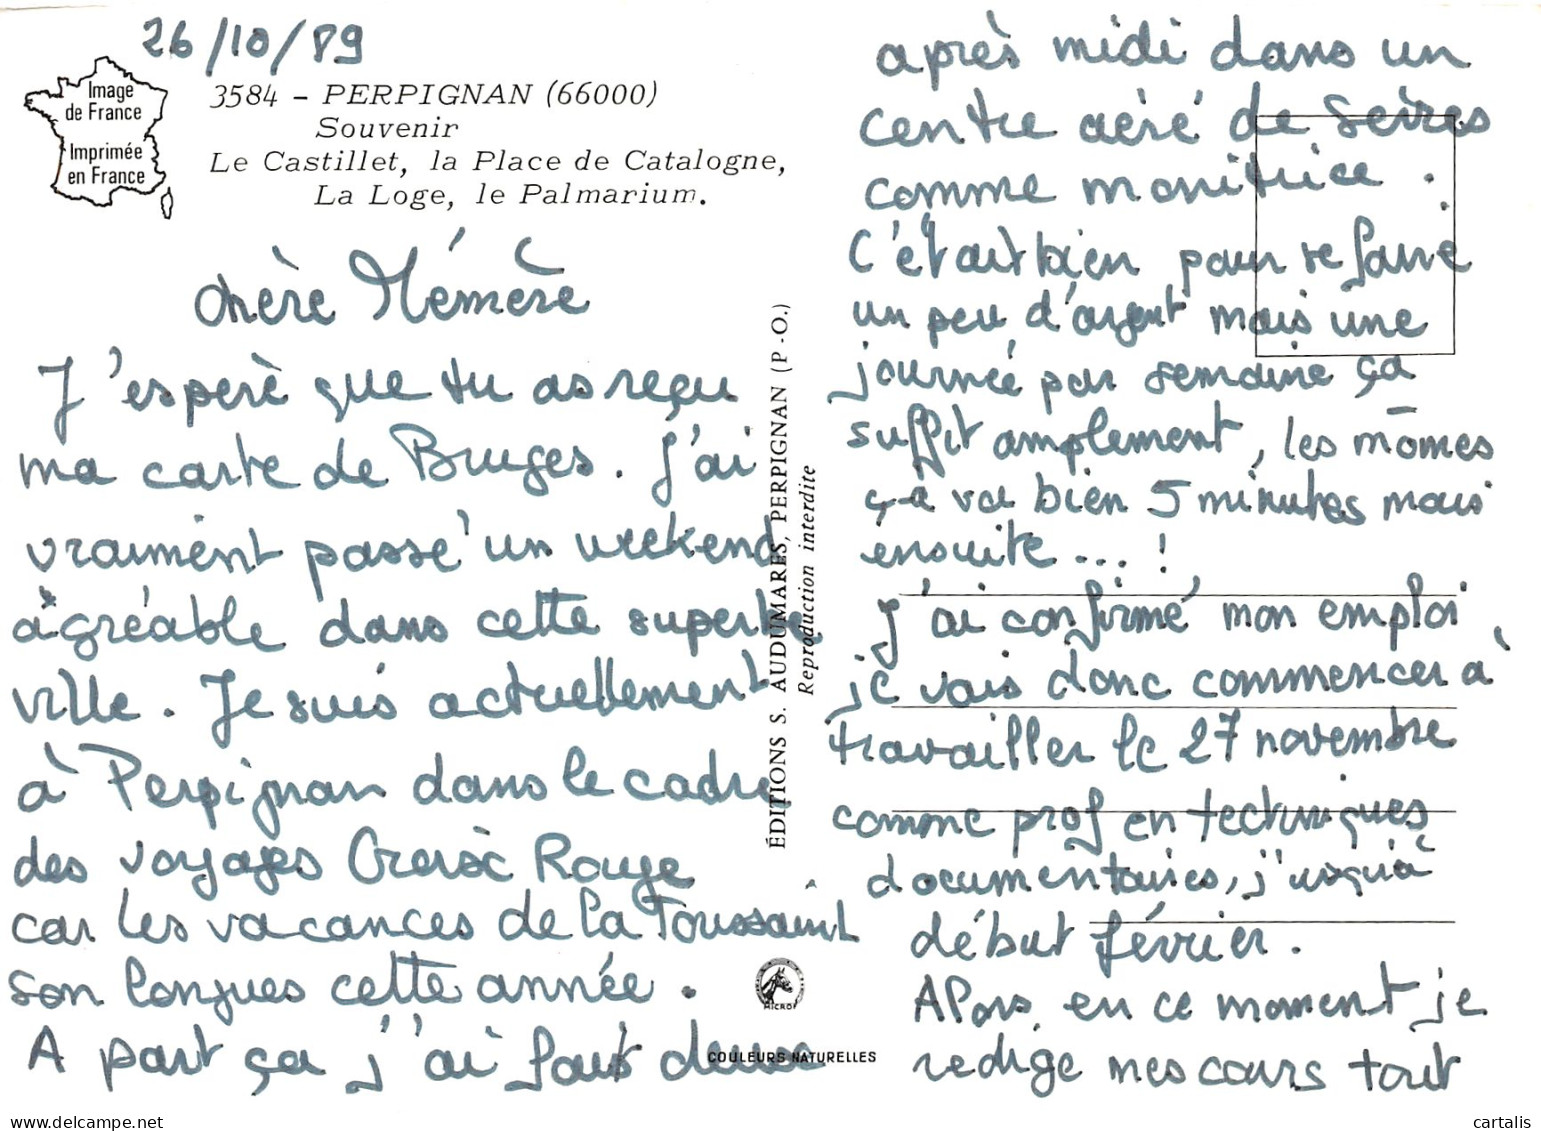 26/10/89
Image
de France
Imprimée
en France
3584 - PERPIGNAN (66000)
Souvenir
Le Castillet, la Place de Catalogne,
La Loge, le Palmarium.
chère Mémère
J'espère que tu as reçu
ma carte de Bruges. J'ai
vraiment passé un weekend
agréable dans cette superbe
ville. Je suis actuellement
à Perpignan dans le cadre
des voyages Croix Rouge
car les vacances de la Toussaint
son longues cette année.
A part ça j'ai fait deux
ÉDITIONS S. AUDUMARES, PERPIGNAN (P.-O.)
Reproduction interdite
MICRO
COULEURS NATURELLES
après midi dans un
centre aéré de
comme monitrice.
C'était bien pour se faire
un peu d'argent mais une
journée par semaine ça
suffit amplement, les mômes
ça va bien 5 minutes mais
ensuite ... !
J'ai confirmé mon emploi,
je vais donc commencer à
travailler le 27 novembre
comme prof en techniques
documentaires, j'usqu'à
début février.
Alors en ce moment je
rédige mes cours tout
cartalis